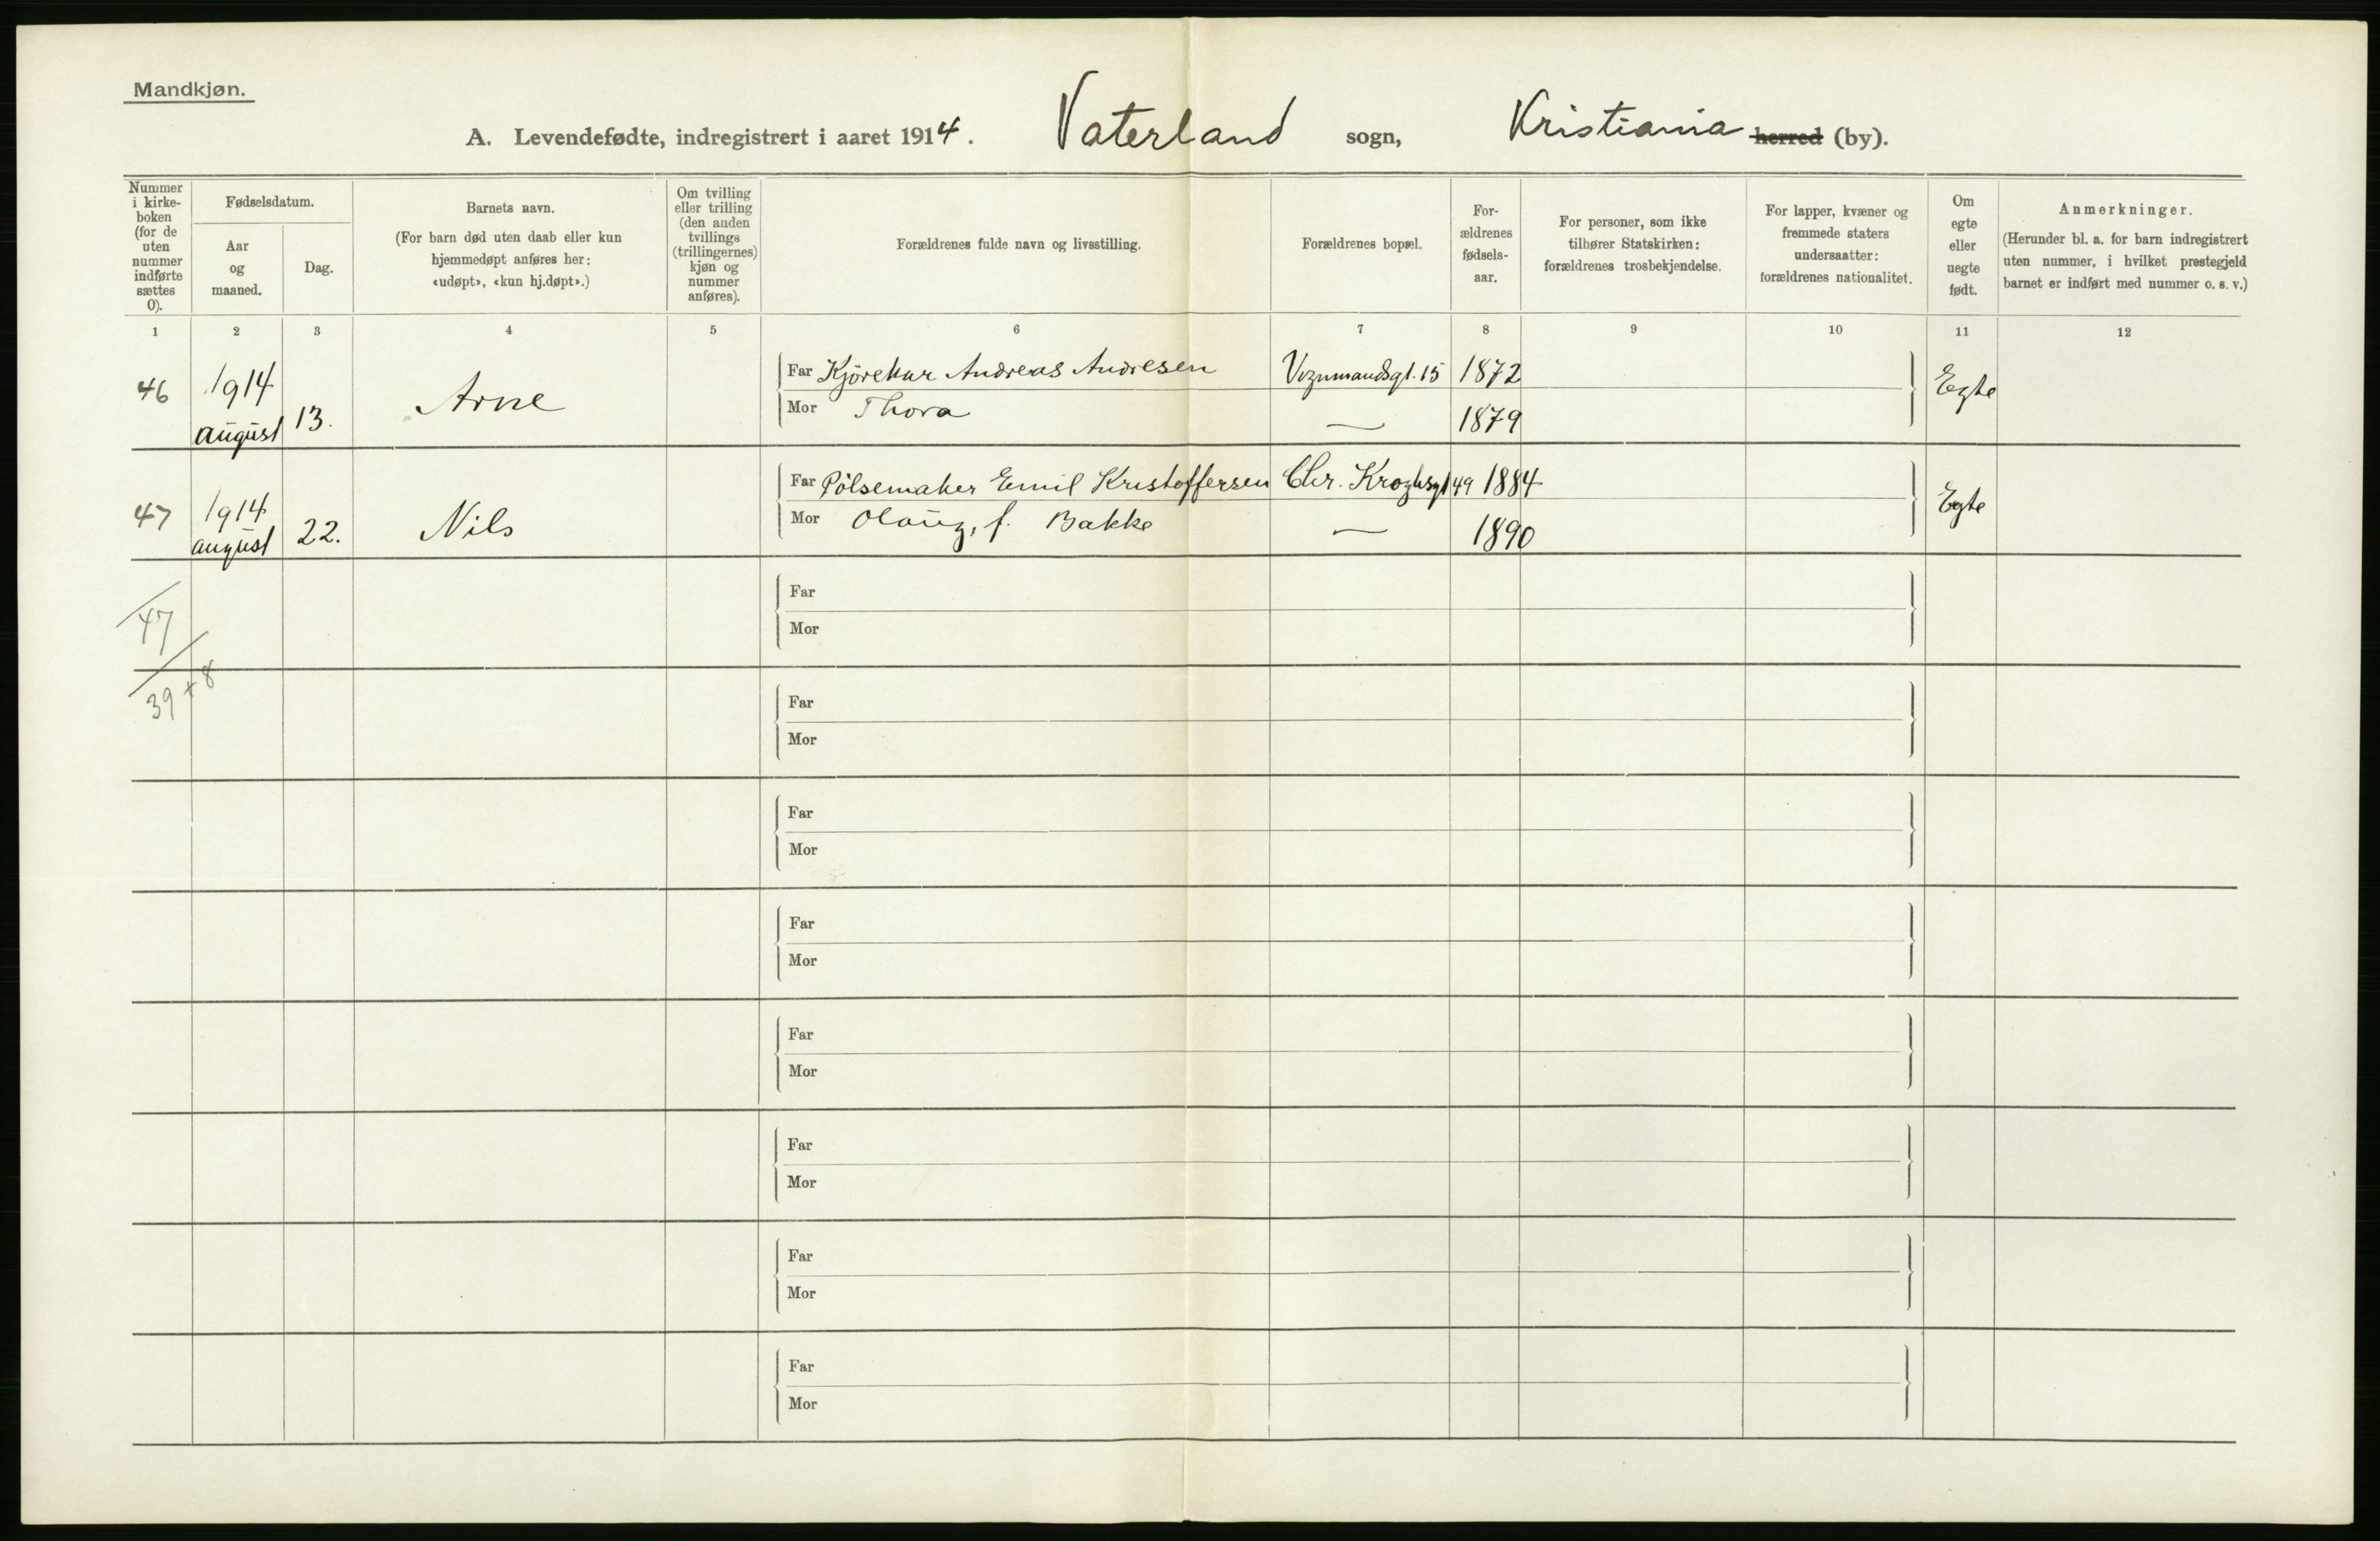 Mandkjøn.
A. Levendefødte, indregistrert i aaret 1914. Vaterland sogn, Kristiania herred (by).
Nummer i kirke-boken (for de uten nummer indførte sættes 0).
Fødselsdatum.
Aar og maaned.
Dag.
Barnets navn.
(For barn død uten daab eller kun hjemmedøpt anføres her: «udøpt», «kun hj.døpt».)
Om tvilling eller trilling (den anden tvillings (trillingernes) kjøn og nummer anføres).
Forældrenes fulde navn og livsstilling.
Forældrenes bopæl.
For-ældrenes fødsels-aar.
For personer, som ikke tilhører Statskirken: forældrenes trosbekjendelse.
For lapper, kvæner og fremmede staters undersaatter: forældrenes nationalitet.
Om egte eller uegte født.
Anmerkninger.
(Herunder bl. a. for barn indregistrert uten nummer, i hvilket prestegjeld barnet er indført med nummer o. s. v.)
1 2 3 4 5 6 7 8 9 10 11 12
46 1914 august 13. Arne
Far Kjørekar Andreas Andresen Vognmandsgt. 15 1872 Egte
Mor Thora — 1879
47 1914 august 22. Nils
Far Pölsemaker Emil Kristoffersen Chr. Kroghsgt 49 1884 Egte
Mor Olaug, f. Bakke — 1890
47
39 + 8
Far
Mor
Far
Mor
Far
Mor
Far
Mor
Far
Mor
Far
Mor
Far
Mor
Far
Mor